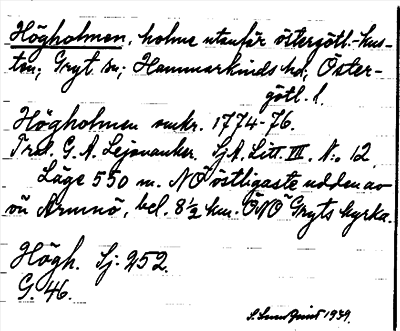 Högholmen, holme utanför östergötl.-kus-
ten; Gryt sn; Hammarkinds hd, Öster-
götl. l.
Högholmen omkr. 1774-76.
Trol. G. A. Lejonanker. SjA. Litt. III. No 12.
Läge 550 m. NO östligaste udden av
ön Armnö, bel. 8½ km. ONO Gryts kyrka.
Högh. Sj: 252.
G. 46.
1939.